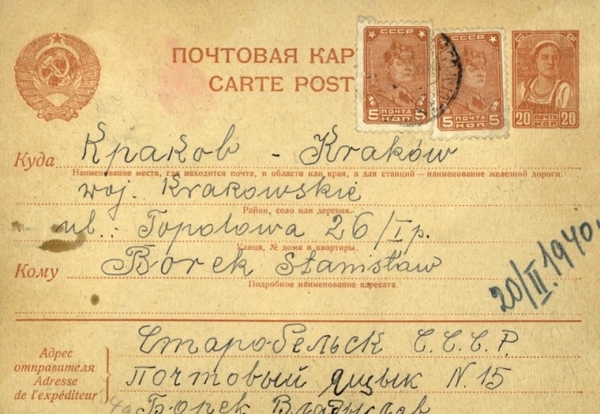 СССР СССР
ПОЧТОВАЯ КАР
CARTE POST
5 ПОЧТА 5 КОП. 5 ПОЧТА 5 КОП. 20 ПОЧТА 20
Куда Краков - Kraków
Наименование места, где находится почта, и области или края, а для станций — наименование железной дороги.
woj. Krakowskie
Район, село или деревня.
ul.: Topolowa 26/I p.
Улица, № дома и квартиры.
Кому Borek Stanisław
Подробное наименование адресата.
20/II 1940
Старобельск С.С.С.Р
Адрес отправителя Почтовый ящык N. 15
Adresse de l'expéditeur Борек Владыслав